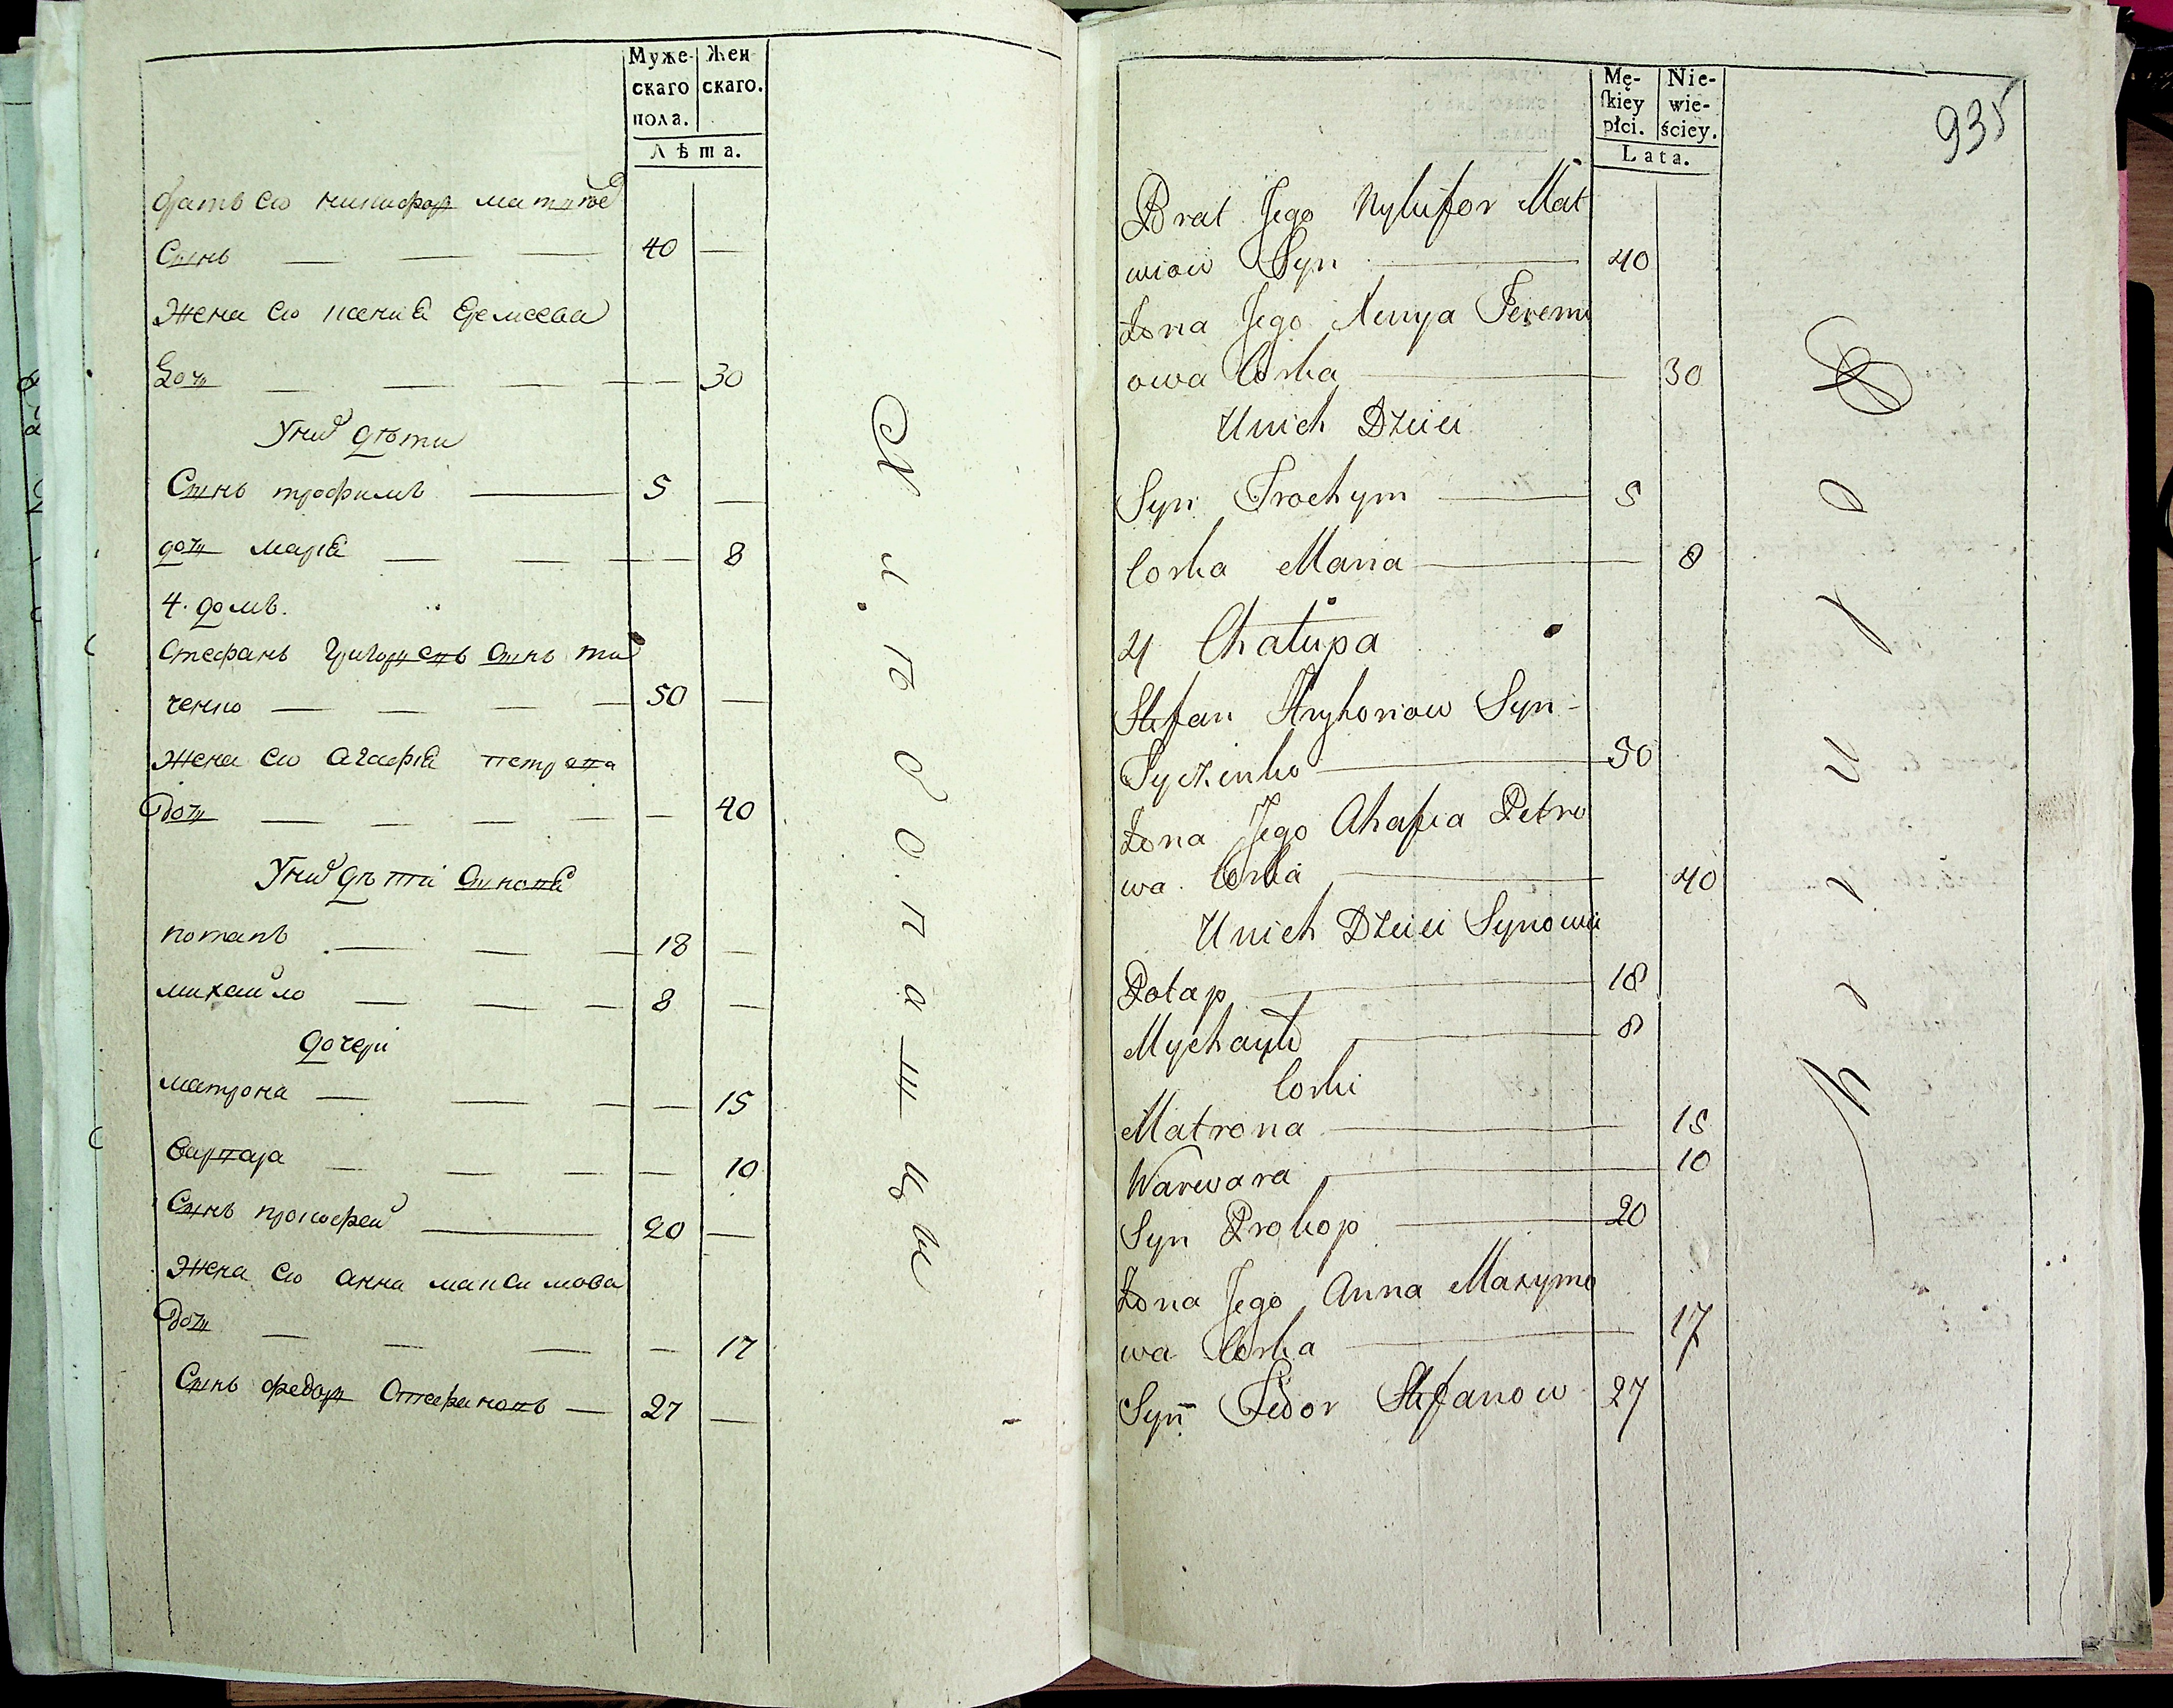 Муже- Жен
скаго скаго.
пола.
Лѣта.
братъ ево никифор матѵѣев
Сынъ — — — 40 —
Жена ево ксения Еремеева
Доч — — — — 30
У них дѣти
Сынъ трофимъ — 5 —
доч мария — — — 8
4. домъ.
Стефанъ Григориевъ сынъ ти
ченко — — — — 50 —
жена ево агафия петрова
Доч — — — — — 40
У них дѣти Синовя
потапъ — — — 18 —
михайло — — — 8 —
дочери
матрона — — — — 15
варвара — — — — 10
Сынъ прокофей — 20 —
Жена ево анна максимова
Доч — — — — 17
Сынъ федор Стефановъ — 27 —
Хлѣбопашцы
Mę- Nie-
ſkiey wie-
płci. ściey.
Lata.
935
Brat Jego Nykifor Mat
wiow Syn — 40
Żona Jego Xenya Jeremi
owa Corka — 30
Unich Dzieci
Syn Trochym — 5
Corka Maria — 8
4 Chałupa
Stefan Hryhoriow Syn -
Tyczenko — 50
Żona Jego Ahafia Petro
wa Corka — 40
Unich Dzieci Synowie
Potap — 18
Mychayło — 8
Corki
Matrona — 15
Warwara — 10
Syn Prokop — 20
Żona Jego Anna Maxymo
wa Corka — 17
Syn Fedor Stefanow 27